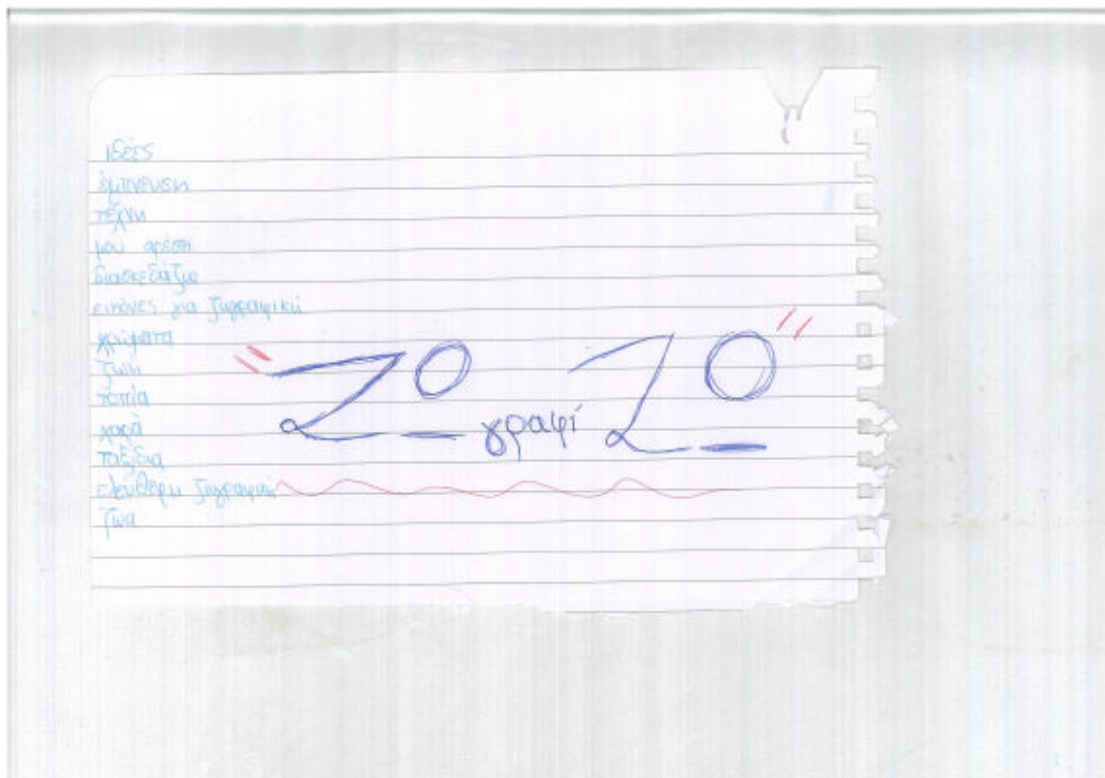 ιδέες
έμπνευση
τέχνη
μου αρέσει
διασκεδάζω
εικόνες για ζωγραφική
χρώματα
ζωή
τοπία
χαρά
ταξίδια
ελεύθερη ζωγραφική
ζώα
"ΖΩ γραφί ΖΩ"